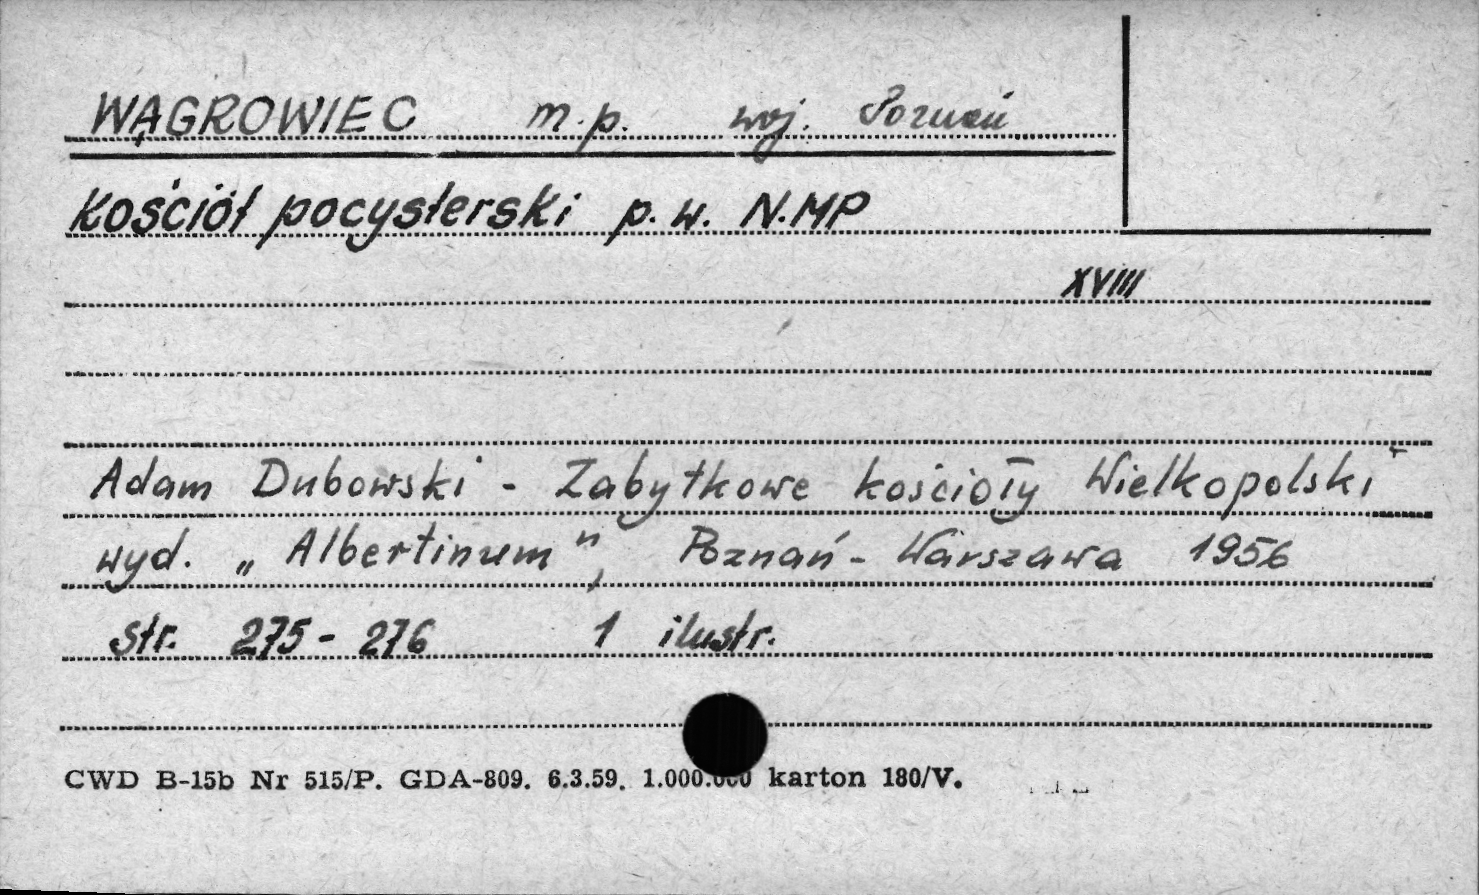 WĄGROWIEC m.p. woj. Poznań
Kościół pocysterski p.w. N.MP
XVIII
Adam Dubowski - Zabytkowe kościoły Wielkopolski
wyd. „Albertinum", Poznań - Warszawa 1956
str. 275 - 276 1 ilustr.
CWD B-15b Nr 515/P. GDA-809. 6.3.59. 1.000.000 karton 180/V.